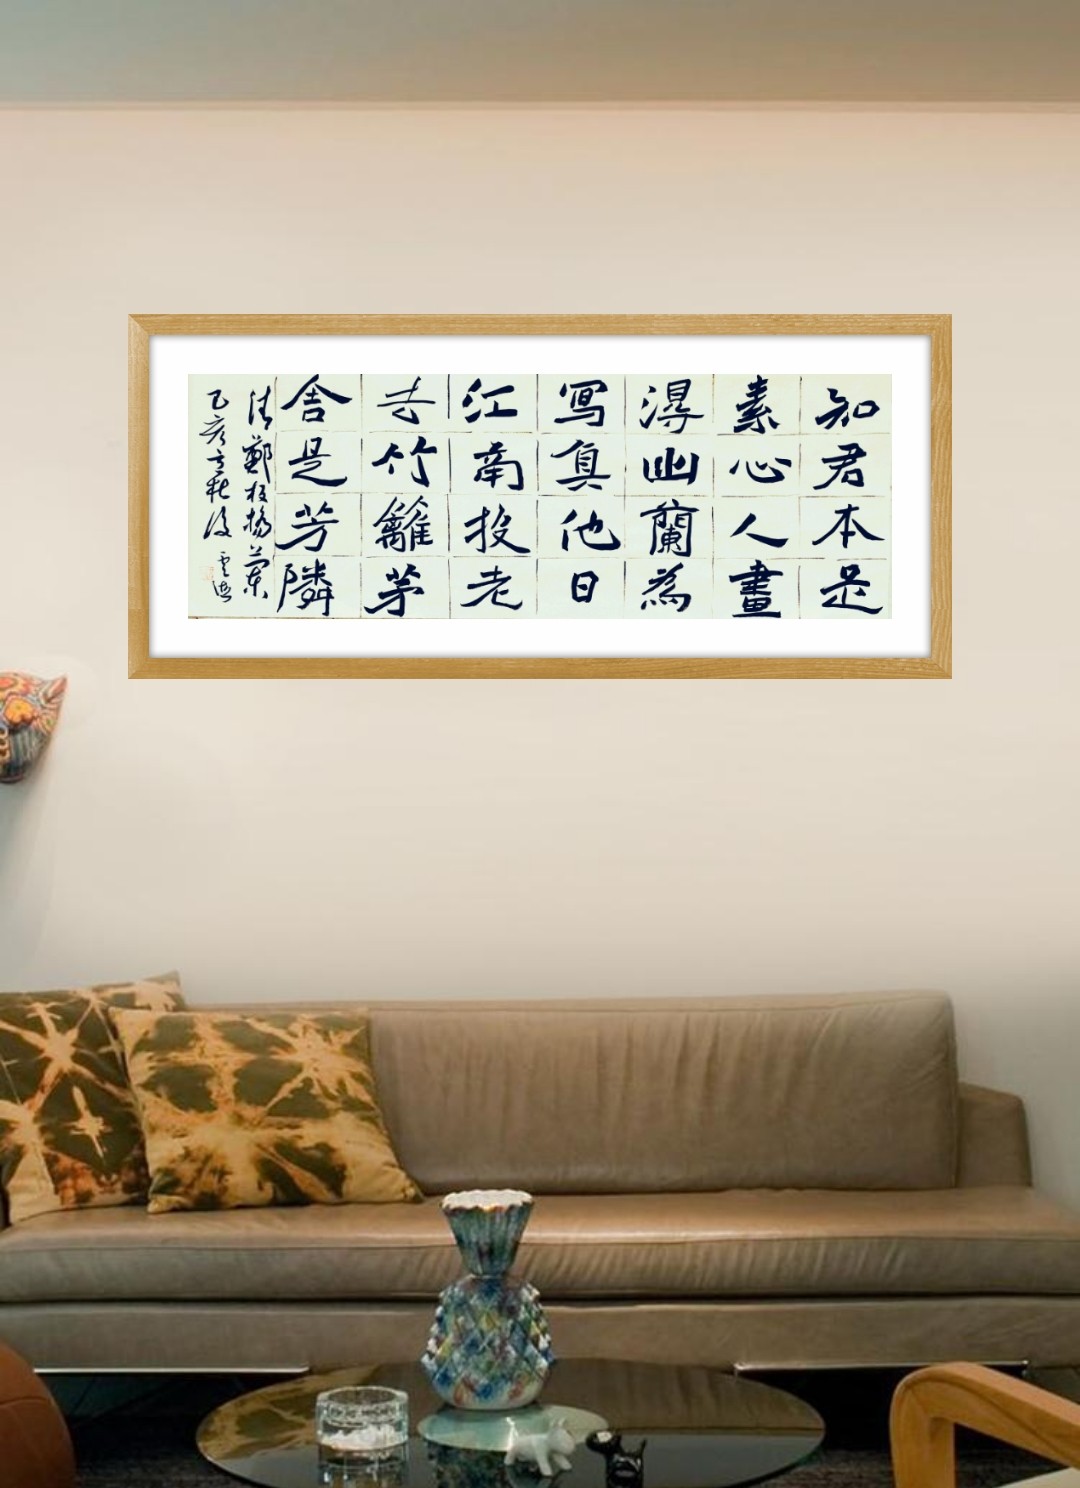 知君本是
素心人畫
得幽蘭為
寫真他日
江南投老
去竹籬茅
舍是芳隣
清鄭板橋蘭
乙亥立秋後